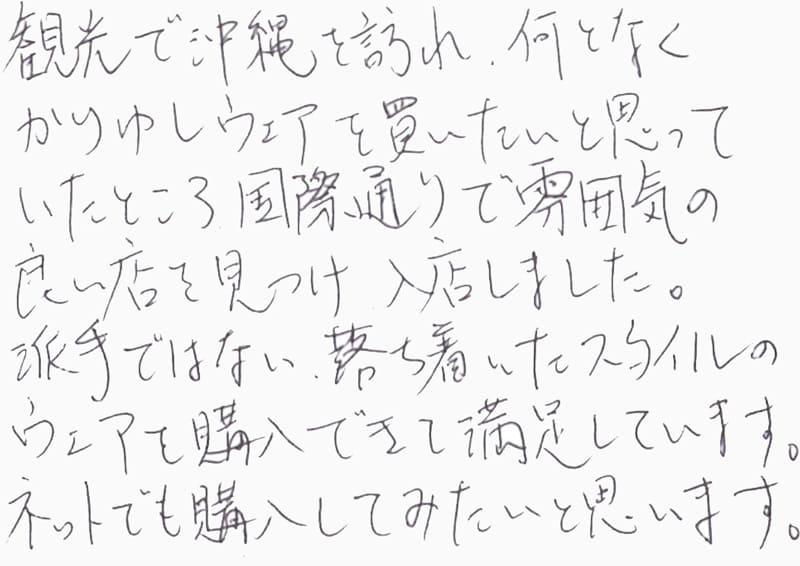 観光で沖縄を訪れ、何となく
かりゆしウェアを買いたいと思って
いたところ国際通りで雰囲気の
良い店を見つけ入店しました。
派手ではない、落ち着いたスタイルの
ウェアを購入できて満足しています。
ネットでも購入してみたいと思います。